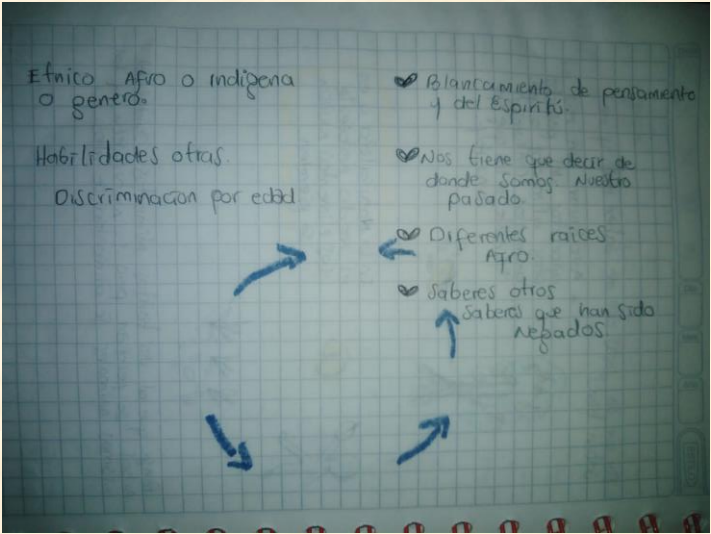 Etnico Afro o indigena
o genero.
Habilidades otras.
Discriminacion por edad
Blancamiento de pensamiento
y del Espiritú.
Nos tiene que decir de
donde somos. Nuestro
pasado
Diferentes raices
Afro.
Saberes otros
Saberes que han sido
negados.